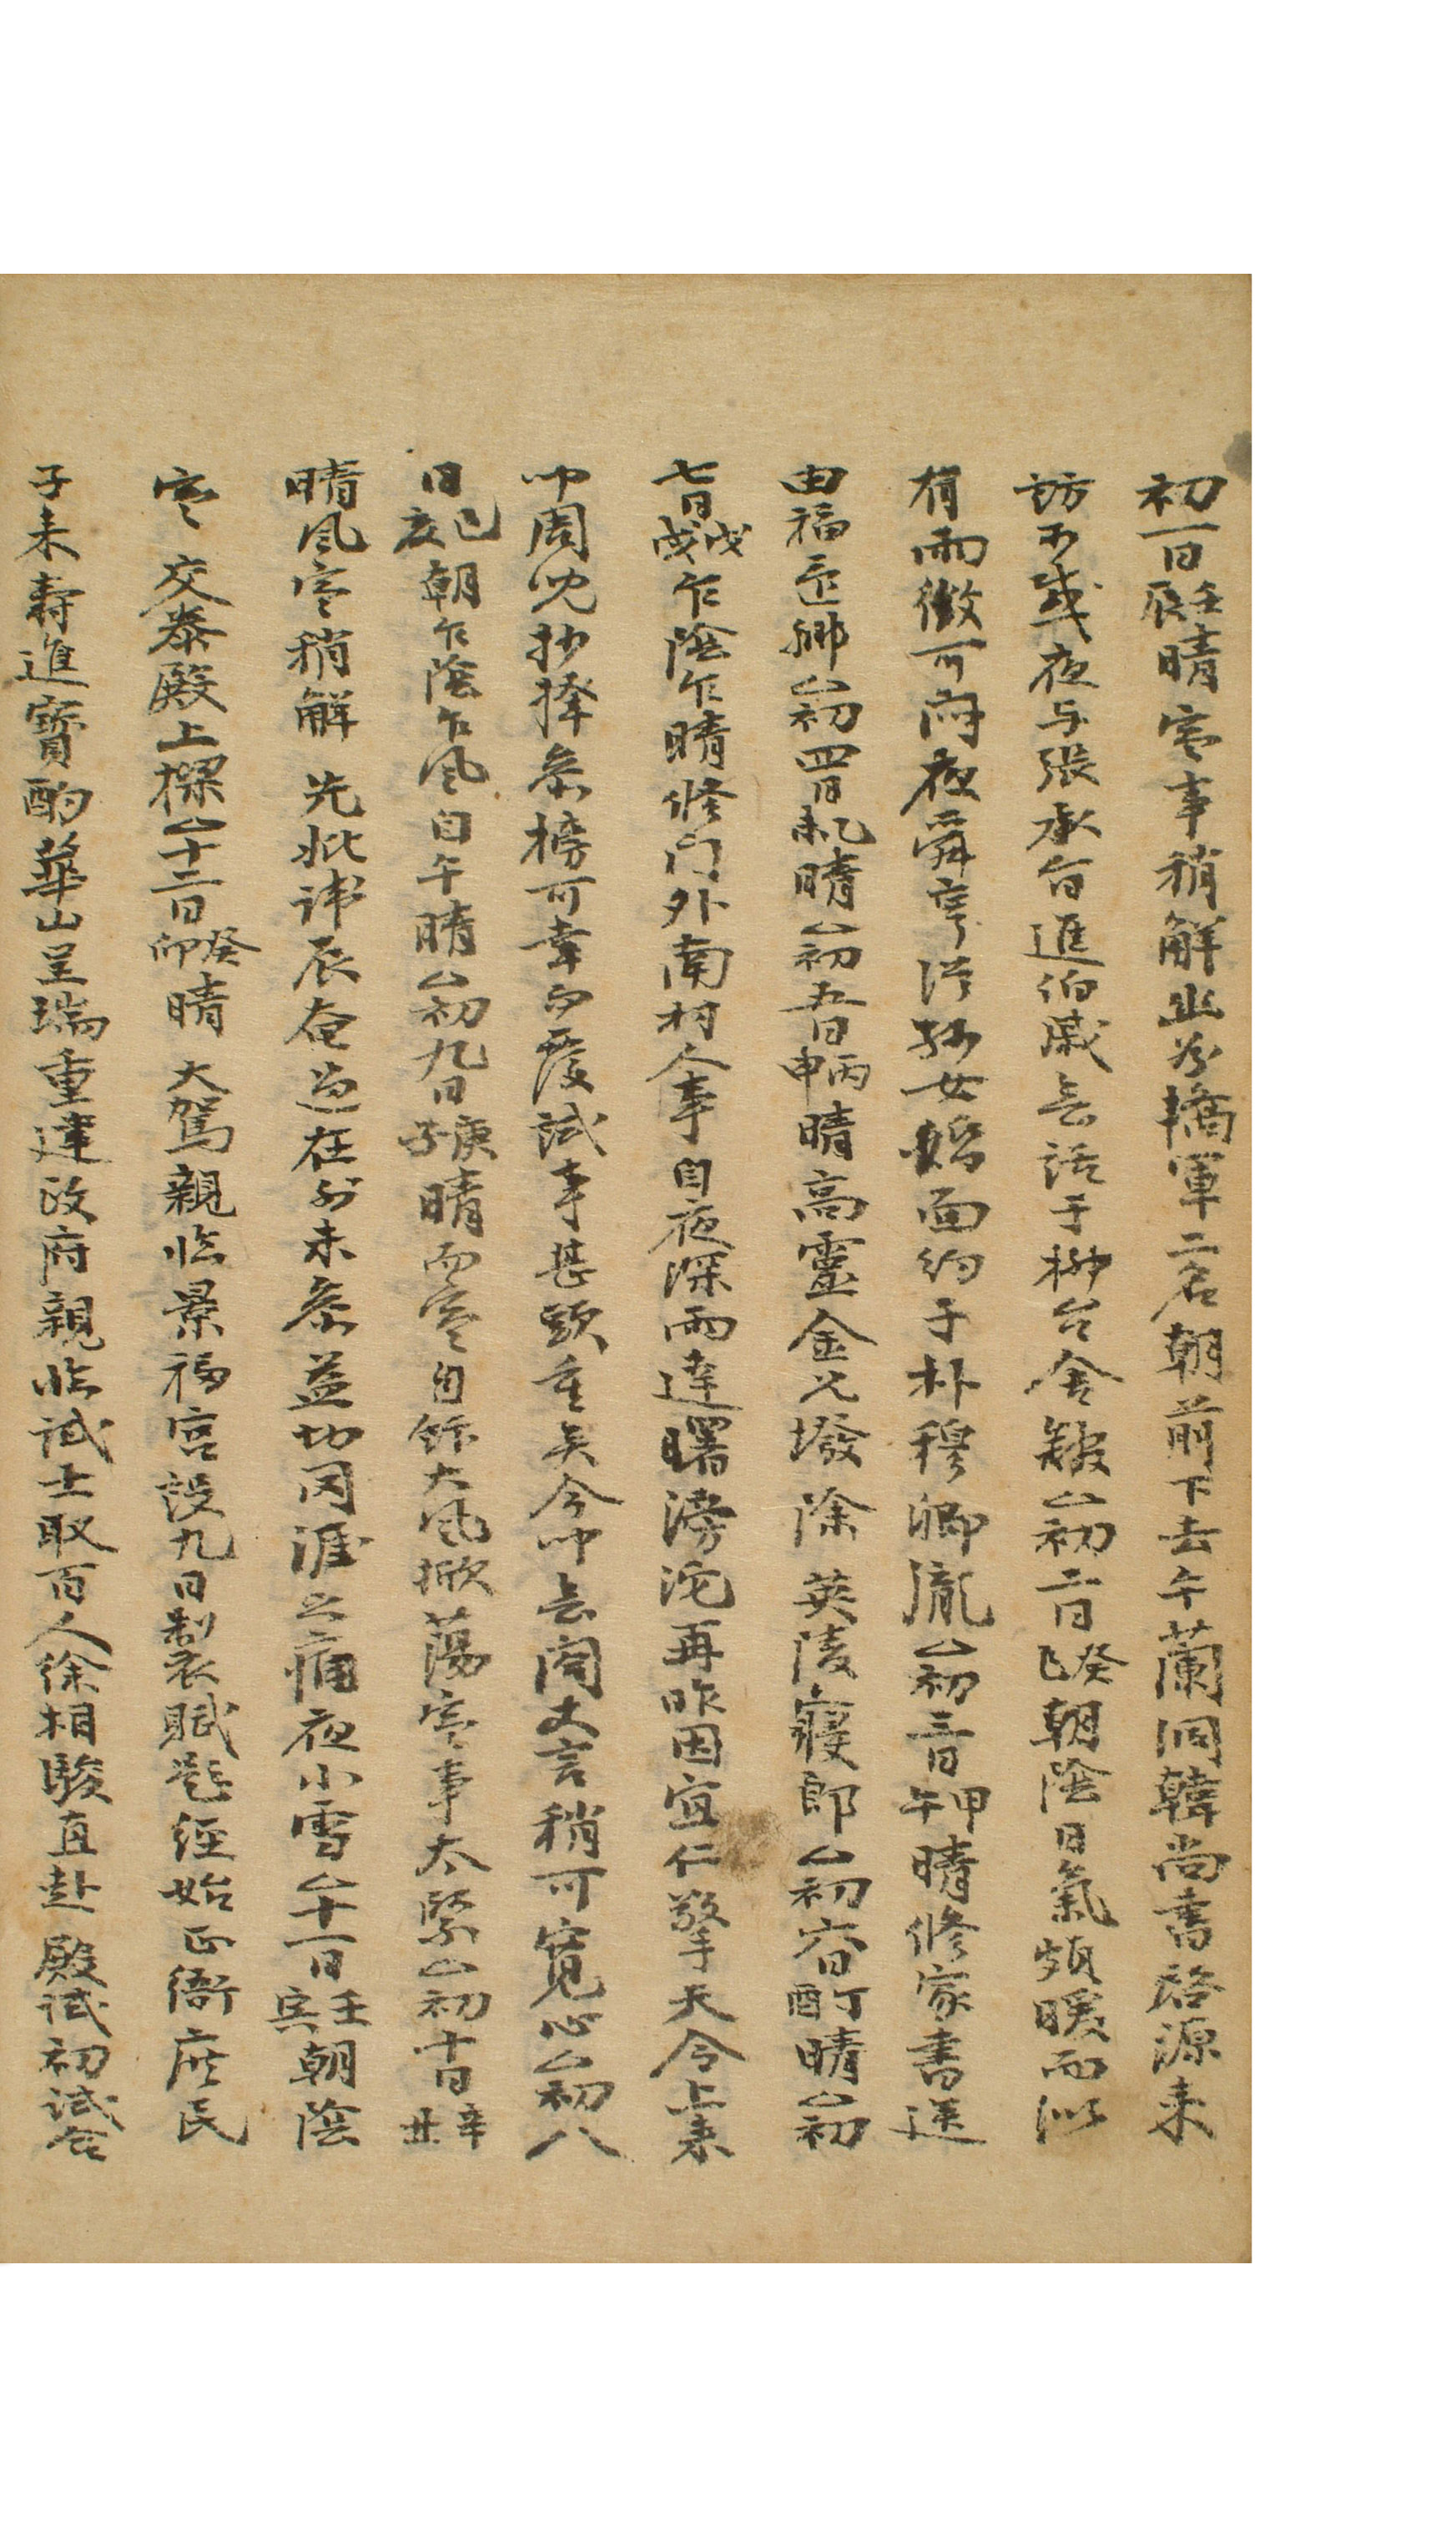 初一日壬辰晴寒事稍解出於橋軍二名朝前下去午蘭洞韓尙書啓源来
訪不感夜与張承旨進伯戚長話于柳台舍皺△初二日癸巳朝陰日氣頗暖而似
有雨徵可悶夜舜亨從孫女婚面約于朴穆卿胤△初三日甲午晴修家書送
由福正鄕△初四日乙未晴△初五日丙申晴高靈金兄墢除 英陵寢郎△初六日丁酉晴△初
七日戊戌乍陰乍晴修门外南村人事自夜深雨達曙滂沱再昨因宜仁擎天令上来
卬周兄抄擇參榜可幸而覆試事甚頭重矣今卬長閤丈言稍可寬心△初八
日己亥朝乍陰乍風自午晴△初九日庚子晴而寒自飯大風掀蕩寒事太緊△初十日辛丑
晴風寒稍解 先妣諱辰奄過在外未參益切罔涯之痛夜小雪△十一日壬寅朝陰
寒 交泰殿上樑△十二日癸卯晴 大駕親臨景福宮設九日製表賦題經始正衙庶民
子来壽進寶酌華山呈瑞重建政府親臨試士取百人徐相駿直赴 殿試初試合